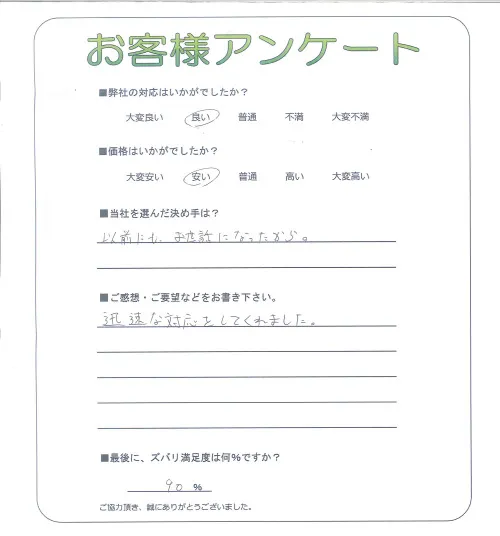 お客様アンケート
■弊社の対応はいかがでしたか？
大変良い 良い 普通 不満 大変不満
■価格はいかがでしたか？
大変安い 安い 普通 高い 大変高い
■当社を選んだ決め手は？
以前にも、お世話になったから。
■ご感想・ご要望などをお書き下さい。
迅速な対応をしてくれました。
■最後に、ズバリ満足度は何%ですか？
90 %
ご協力頂き、誠にありがとうございました。